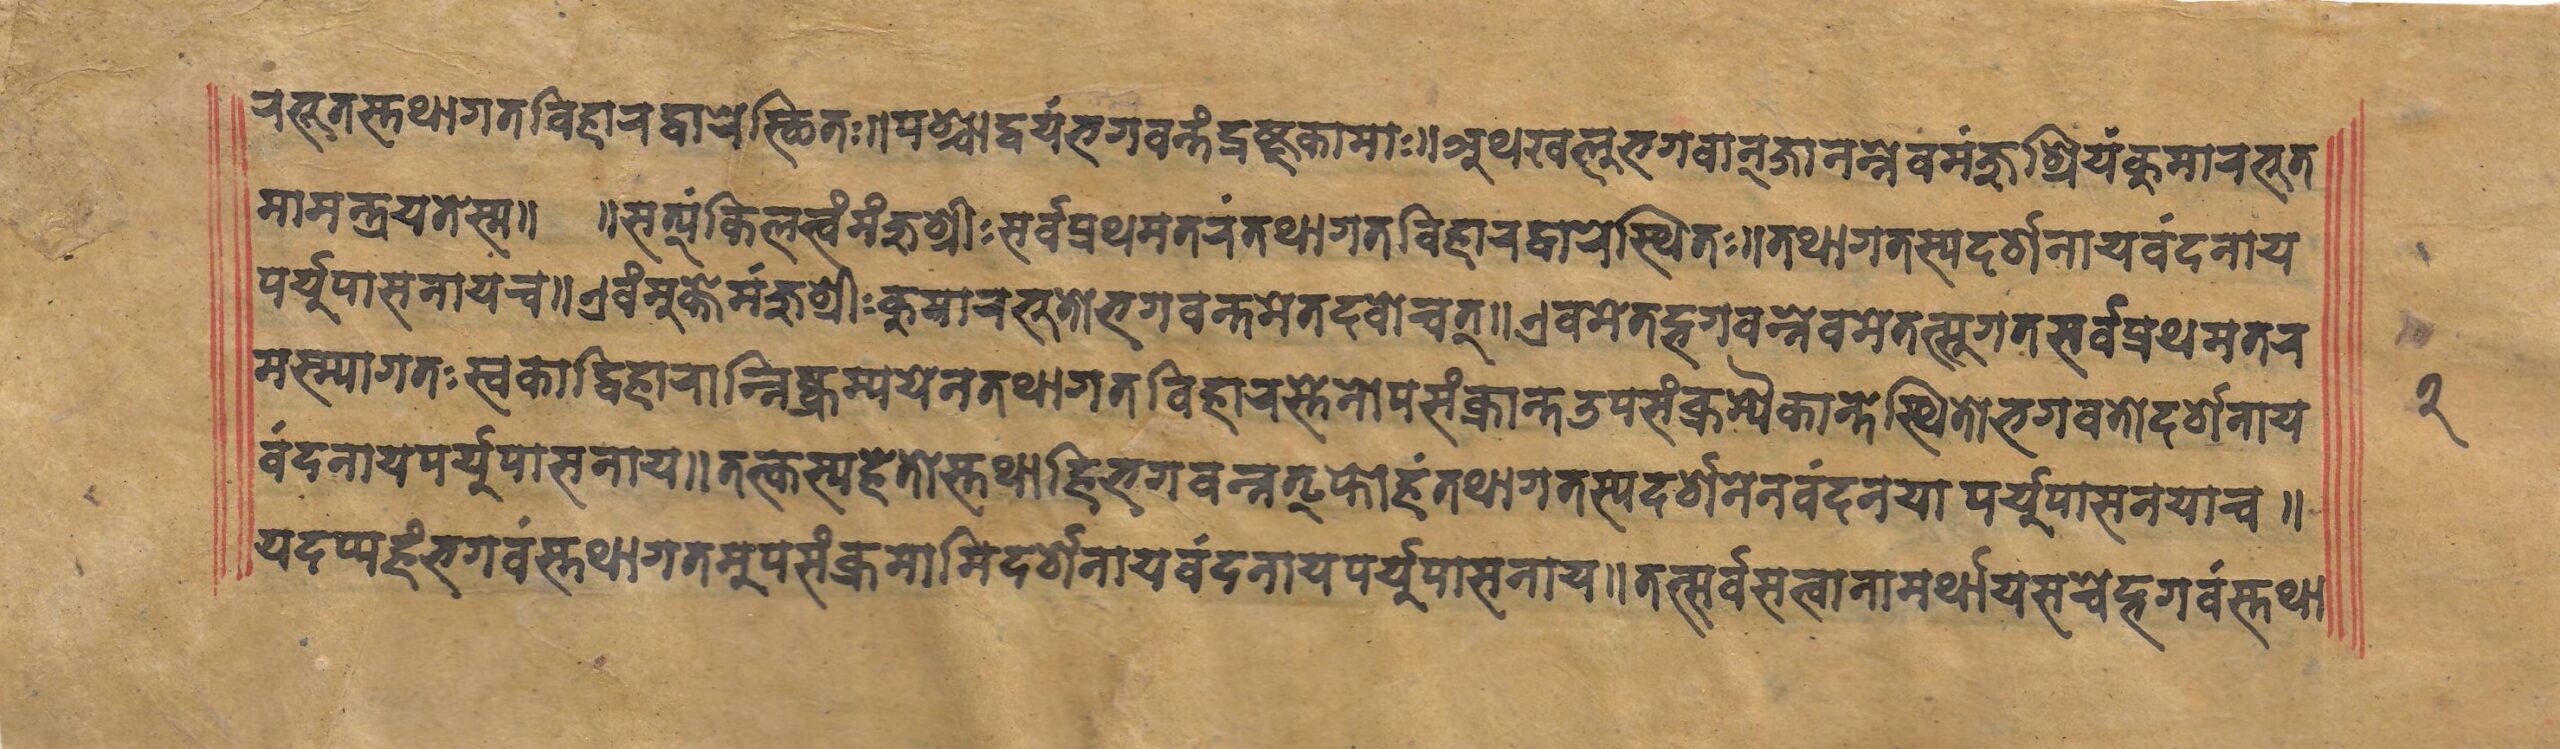 रभूतस्तथागतविहारद्वारेस्थितः॥पश्चाद्वयंभगवन्तंद्रष्टुकामाः॥अथखलुभगवान्जानन्नेवमंजुश्रियंकुमारभूत
मामन्त्रयतेस्म॥ ॥सत्यंकिलत्वंमंजुश्रीःसर्वप्रथमतरंतथागतविहारद्वारेस्थितः॥तथागतस्यदर्शनायवंदनाय
पर्युपासनायच॥एवंमुक्तेमंजुश्रीःकुमारभूतोभगवन्तमेतदवोचत्॥एवमेतद्भगवन्नेवमेतत्सुगतसर्वप्रथमतर
मस्म्यागतःस्वकाद्विहारान्निष्क्रम्ययेनतथागतविहारस्तेनोपसंक्रान्तउपसंक्रम्यैकान्तेस्थितोभगवतोदर्शनाय
वंदनायपर्युपासनाय॥तत्कस्यहेतोस्तथाहिभगवन्नतृप्तोहंतथागतस्यदर्शनेनवंदनया पर्युपासनयाच॥
यदप्यहंभगवंस्तथागतमुपसंक्रमामिदर्शनायवंदनायपर्युपासनाय॥तत्सर्वसत्वानामर्थायसचेद्भगवंस्तथा
२